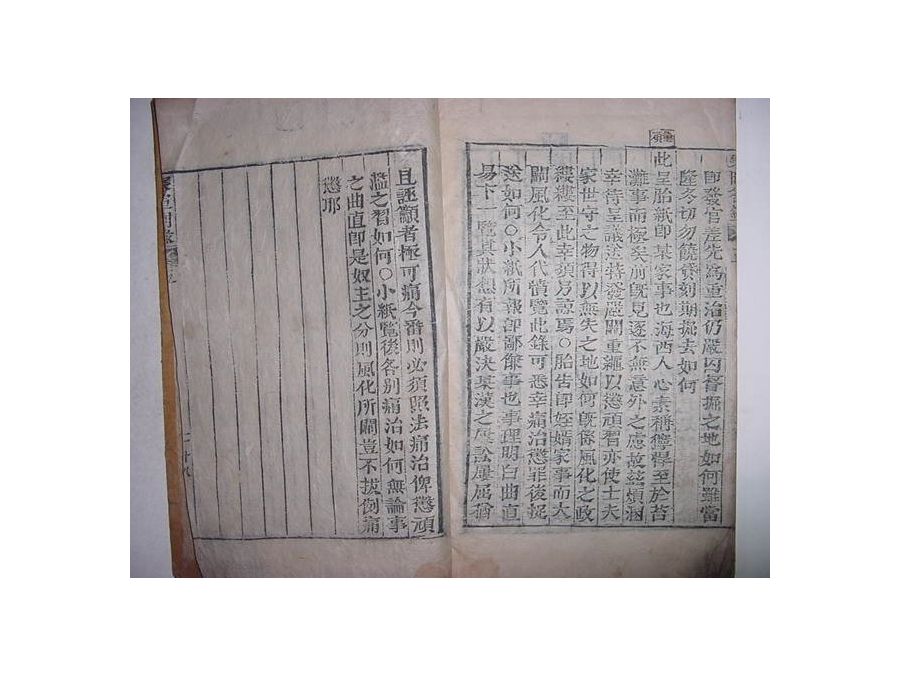 即發官差先爲重治仍嚴囚督掘之地如何雖當
隆冬切勿饒貸刻期掘去如何
此呈胎紙即某家事也海西人心素稱獰悍至於苔
灘事而極矣前旣見逐不無意外之慮故玆煩溷
幸待呈議送特發嚴關重繩以懲頑習亦使士夫
家世守之物得以無失之地如何旣係風化之政
縷縷至此幸須另諒焉○胎告即姪婿家事而大
關風化令人代憤覽此錄可悉幸痛治懲罪後捉
送如何○小紙所報即鄙傔事也事理明白曲直
易下一覽其狀想有以嚴決某漢之每訟屢屈猶
且誣籲者極可痛今番則必須照法痛治俾懲頑
濫之習如何○小紙覽後各別痛治如何無論事
之曲直即是奴主之分則風化所關豈不拔例痛
懲耶